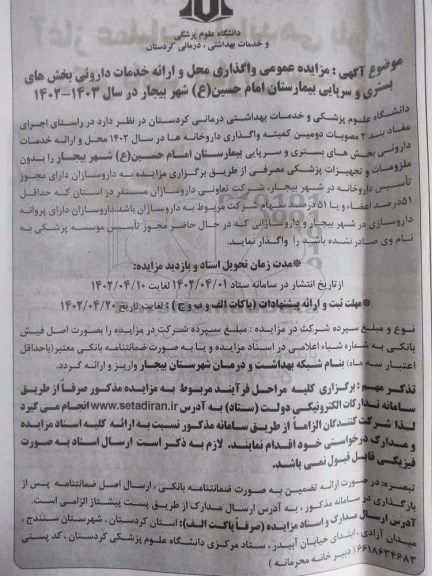 دانشگاه علوم پزشکی
و خدمات بهداشتی ، درمانی کردستان
موضوع آگهی : مزایده عمومی واگذاری محل و ارائه خدمات داروئی بخش های
بستری و سرپایی بیمارستان امام حسین(ع) شهر بیجار در سال ۱۴۰۳-۱۴۰۲
دانشگاه علوم پزشکی و خدمات بهداشتی درمانی کردستان در نظر دارد در راستای اجرای
مفاد بند ۲ مصوبات دومین کمیته واگذاری داروخانه ها در سال ۱۴۰۲ محل و ارائه خدمات
داروئی بخش های بستری و سرپایی بیمارستان امام حسین(ع) شهر بیجار را بدون
ملزومات و تجهیزات پزشکی مصرفی از طریق برگزاری مزایده به داروسازان دارای مجوز
تأسیس داروخانه در شهر بیجار، شرکت تعاونی داروسازان مستقر در استان که حداقل
۵۱درصد اعضاء و یا ۵۱ درصد سهام شرکت مربوط به داروسازان باشد،داروسازان دارای پروانه
داروسازی در شهر بیجار و داروسازانی که در حال حاضر مجوز تأسیس موسسه پزشکی به
نام وی صادر نشده باشد را واگذار نماید.
*مدت زمان تحویل اسناد و بازدید مزایده:
از تاریخ انتشار در سامانه ستاد ۱۴۰۲/۰۴/۰۱ لغایت ۱۴۰۲/۰۴/۱۰
*مهلت ثبت و ارائه پیشنهادات (پاکات الف و ب و ج) : لغایت تاریخ ۱۴۰۲/۰۴/۲۰
نوع و مبلغ سپرده شرکت در مزایده : مبلغ سپرده شرکت در مزایده را بصورت اصل فیش
بانکی به شماره شباء اعلامی در اسناد مزایده و یا به صورت ضمانتنامه بانکی معتبر(باحداقل
اعتبار سه ماه) بنام شبکه بهداشت و درمان شهرستان بیجار واریز و ارائه گردد.
تذکر مهم : برگزاری کلیه مراحل فرآیند مربوط به مزایده مذکور صرفاً از طریق
سامانه تدارکات الکترونیکی دولت (ستاد) به آدرس www.setadiran.ir انجام می گیرد
لذا شرکت کنندگان الزاماً از طریق سامانه مذکور نسبت به ارائه کلیه اسناد مزایده
و مدارک درخواستی خود اقدام نمایند. لازم به ذکر است ارسال اسناد به صورت
فیزیکی قابل قبول نمی باشد.
تبصره: در صورت ارائه تضمین به صورت ضمانتنامه بانکی ، ارسال اصل ضمانتنامه پس از
بارگذاری در سامانه مذکور ، به آدرس ارسال مدارک از طریق پست پیشتاز الزامی است.
آدرس ارسال مدارک و اسناد مزایده (صرفاً پاکت الف): استان کردستان ، شهرستان سنندج ،
میدان آزادی ، ابتدای خیابان آبیدر ، ستاد مرکزی دانشگاه علوم پزشکی کردستان ، کد پستی
۶۶۱۸۶۳۴۶۸۳ ( دبیر خانه محرمانه )